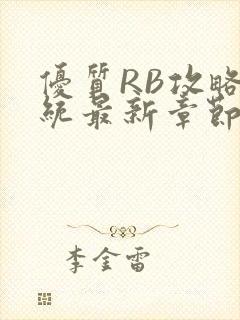 優質RB攻略
統最新章節
李金雷